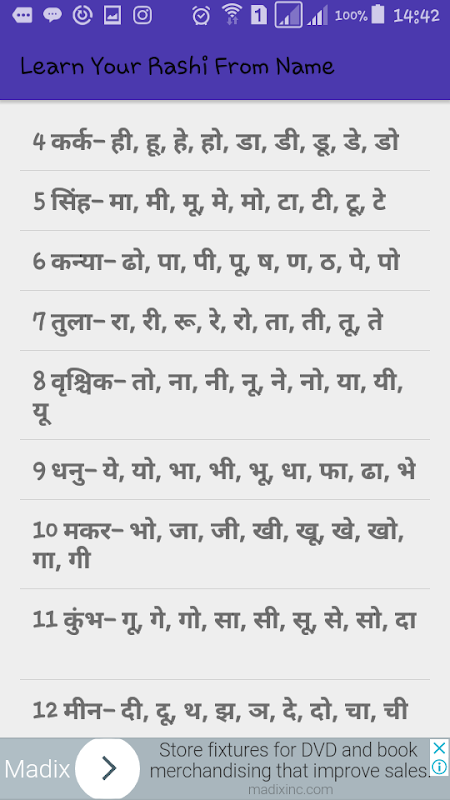 100% 14:42
Learn Your Rashi From Name
4 कर्क– ही, हू, हे, हो, डा, डी, डू, डे, डो
5 सिंह– मा, मी, मू, मे, मो, टा, टी, टू, टे
6 कन्या– ढो, पा, पी, पू, ष, ण, ठ, पे, पो
7 तुला– रा, री, रू, रे, रो, ता, ती, तू, ते
8 वृश्चिक– तो, ना, नी, नू, ने, नो, या, यी,
यू
9 धनु– ये, यो, भा, भी, भू, धा, फा, ढा, भे
10 मकर– भो, जा, जी, खी, खू, खे, खो,
गा, गी
11 कुंभ– गू, गे, गो, सा, सी, सू, से, सो, दा
12 मीन– दी, दू, थ, झ, ञ, दे, दो, चा, ची
Madix
Store fixtures for DVD and book
merchandising that improve sales.
madixinc.com